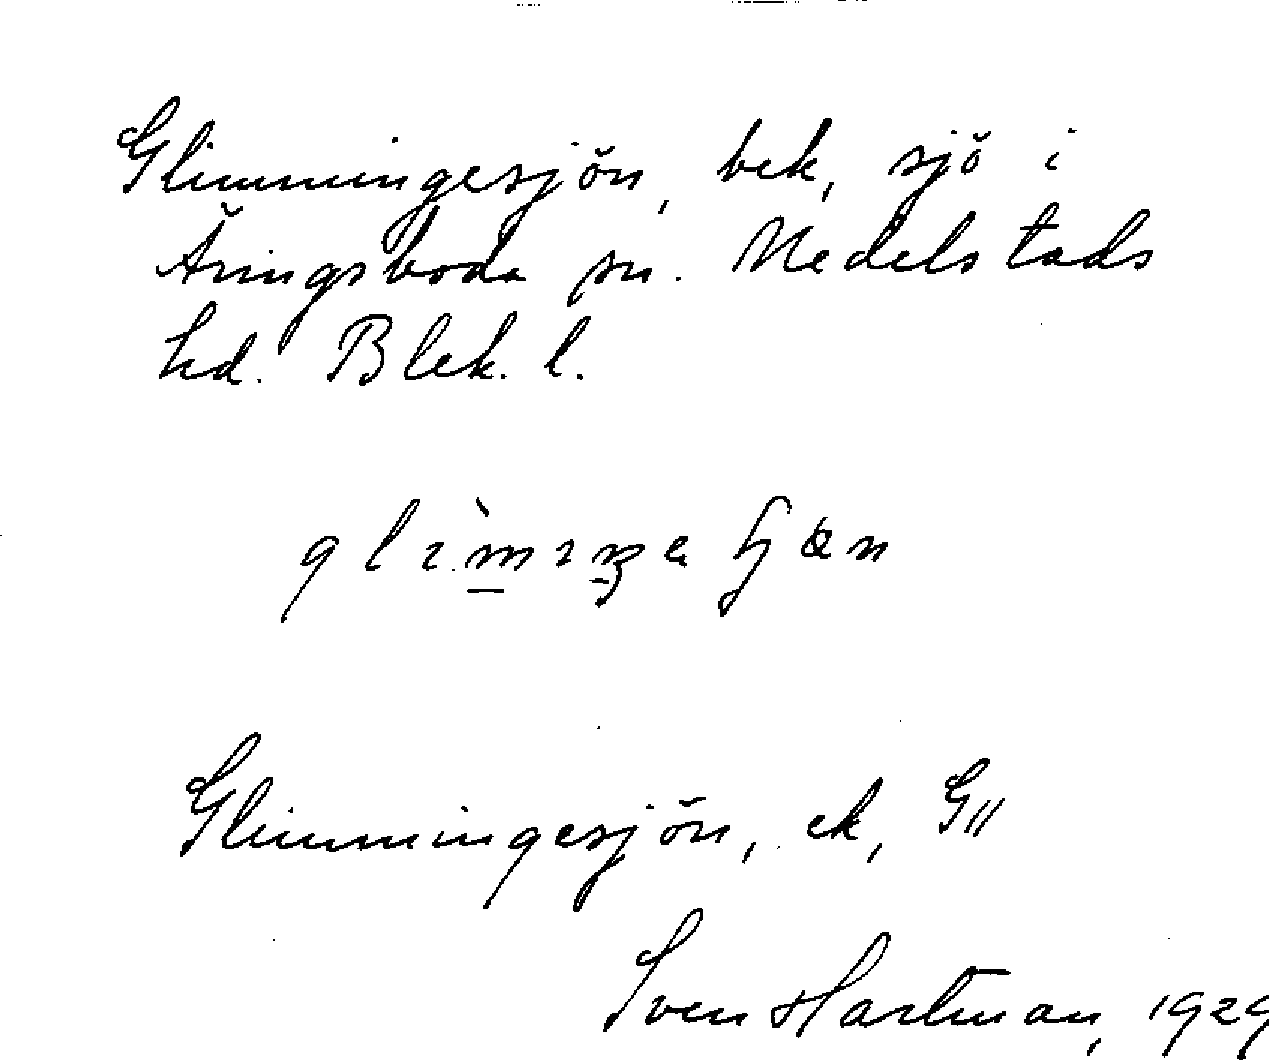 Glimmingesjön, bek, sjö i
Åringsboda sn. Medelstads
hd. Blek. l.
Glimmingesjön, ek, G11
Sven Hartman, 1929